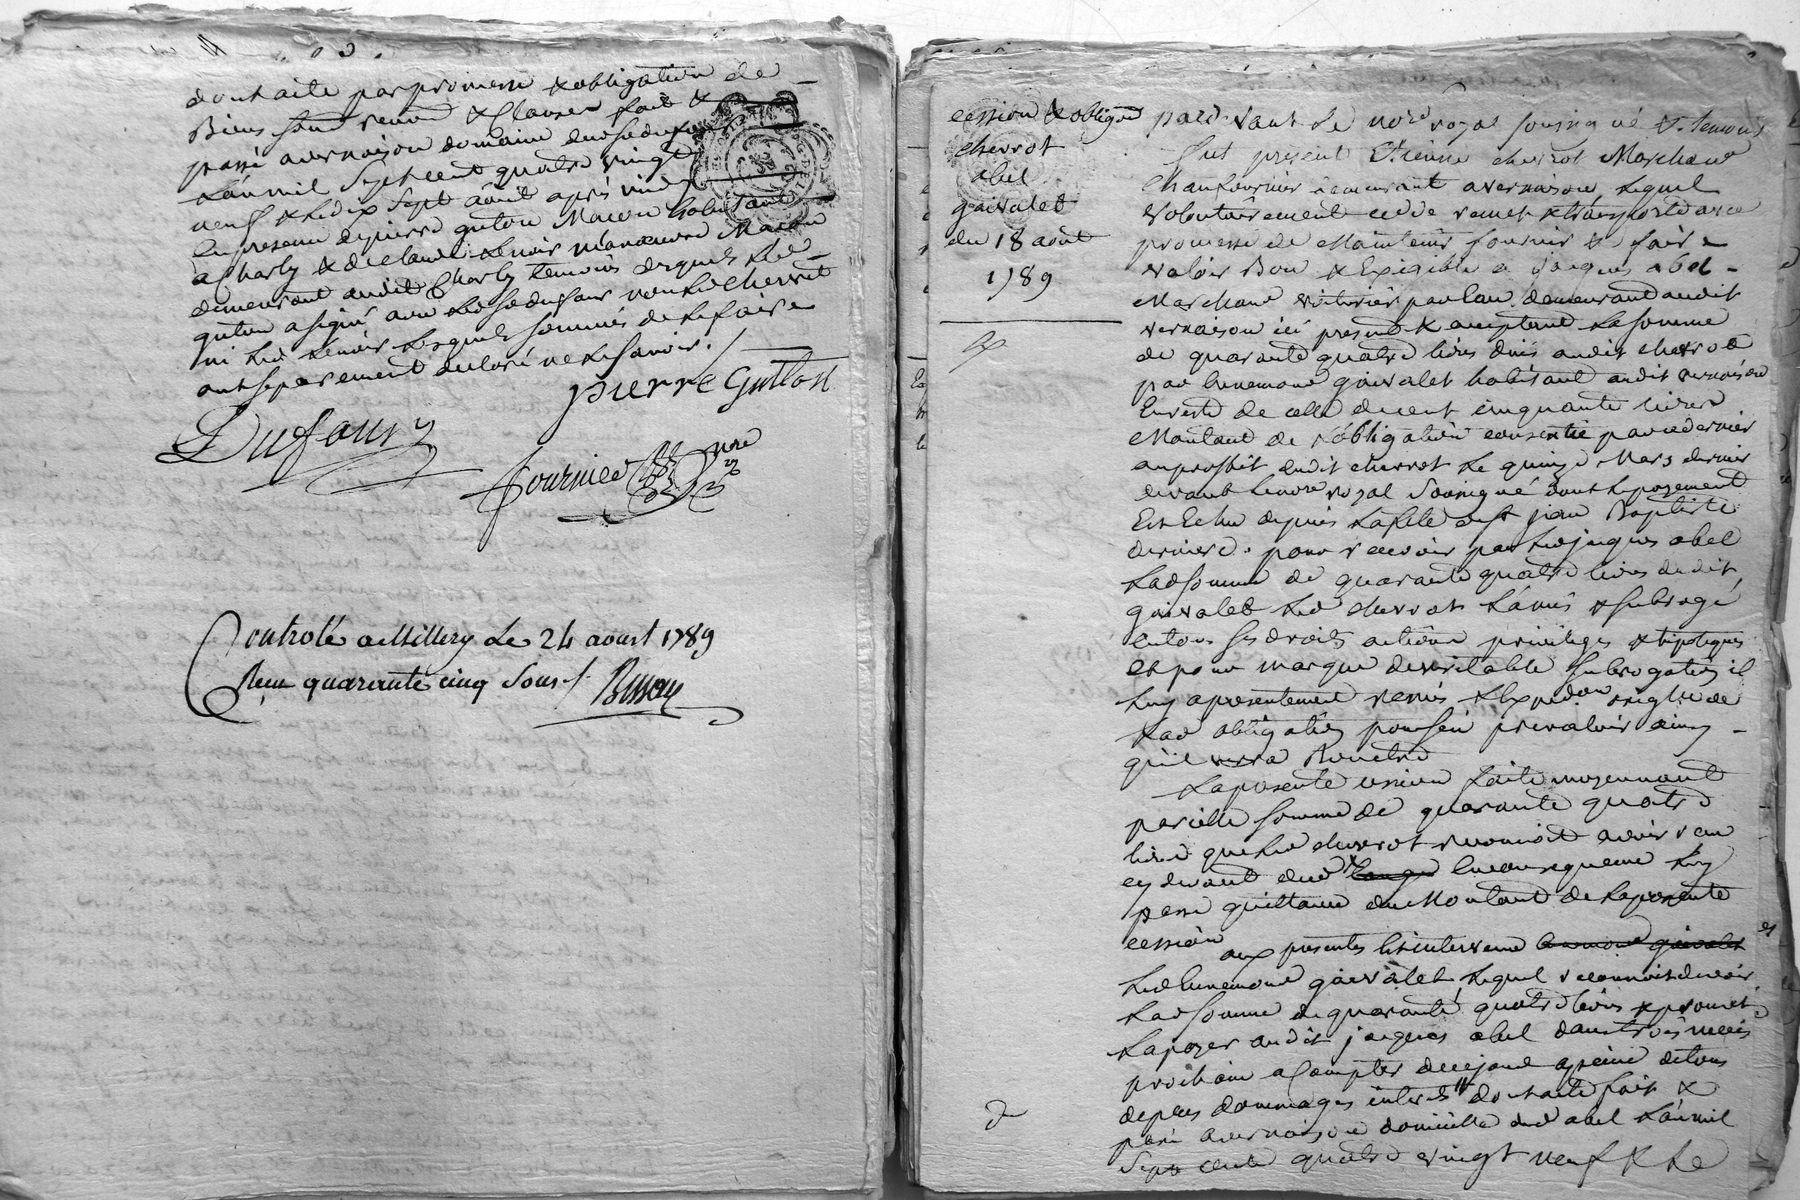 dont acte par promesse & obligation de
Biens soum renon & clauses fait &
passé a vernaison domaine dud s.r dufour
L'an mil sept cent quatre vingt
neuf & le dix sept août après midy
En presence de pierre guton Macon habitant
a Charly & de Claude Lenoir manœuvre
demeurant audit Charly temoins desquels led
guton a signé avec led s.r dufour non led chevrot
ni led Lenoir lesquels sommés de le faire
ont separement declaré ne le savoir ./
pierre Gutton
Dufour
fournier nre
Controlé a Millery Le 24 aoust 1789
Reçu quarante cinq sous ./.
cession & obligon
chevrot
abel
gaivalet
du 18 août
1789
pard.vant le no.re royal soussigné & temoins
fut present Etienne chevrot Marchand
chanfournier demeurant a vernaison, lequel
volontairement cedde remet & transporte avec
promesse de Maintenir fournir & faire
valoir Bon & Exigible a jacques abel
Marchand voiturier par eau demeurant audit
vernaison ici present & acceptant La somme
de quarante quatre livres dues audit chevrot
par gaivalet habitant audit vernaison
En reste de celle de cent cinquante livres
Montant de l'obligation consentie par ce dernier
au proffit dudit chevrot le quinze Mars dernier
devant le no.re royal soussigné dont le payement
Est Echu depuis la fete de s.t jean Baptiste
derniere. pour recevoir par led jacques abel
Lad somme de quarante quatre livres dudit
gaivalet led chevrot l'a mis & subrogé
en tous ses droits actions privileges & hipoteques
et pour marque de veritable subrogation il
luy a presentement remis l'Expedon en regle de
Lad obligation pour s'en prevaloir ainsy
qu'il verra Bonetre
La presente cession faite moyennant
pareille somme de quarante quatre
livres que led chevrot reconnoit avoir reçu
cy devant dud En consequence luy
passe quittance du Montant de la presente
cession
aux presentes Est intervenu
Led gaivalet, lequel reconnoit devoir
La d somme de quarante quatre livres & promet
La payer audit jacques abel dans trois mois
prochain a Compter de ce jour a peine de tous
depens dommages interets dont acte fait &
passé a vernaison domicille dud abel L'an mil
Sept cent quatre vingt neuf & Le